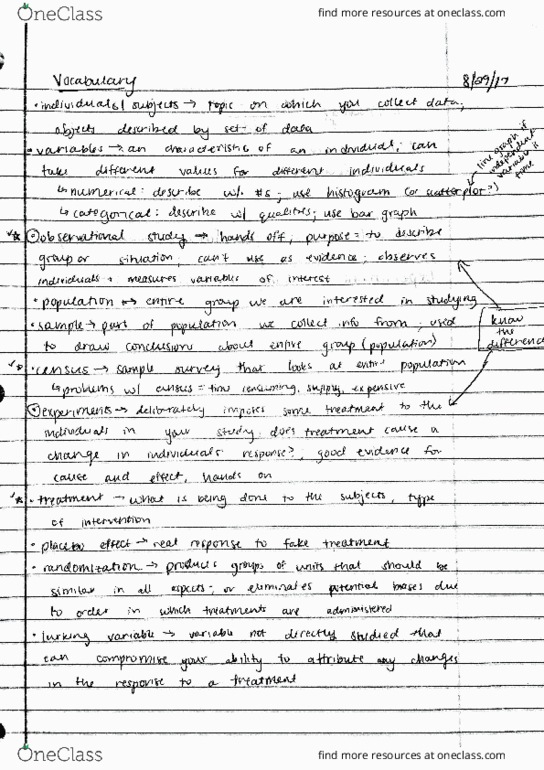 OneClass
find more resources at oneclass.com
Vocabulary
8/29/17
• individuals/subjects → topic on which you collect data;
objects described by set of data
• variables → an characteristic of an individual; can
take different values for different individuals
↳ numerical: describe w/ #s; use histogram (or scatterplot)
↳ categorical: describe w/ qualities; use bar graph
line graph if
independent
variable is
time
observational study → hands off, purpose = to describe
group or situation; can't use as evidence; observes
individuals + measures variables of interest
• population → entire group we are interested in studying
• sample → part of population we collect info from; used
to draw conclusion about entire group (population)
know
the
difference
• census → sample survey that looks at entire population
↳ problems w/ census = time consuming, supply, expensive
experiments → deliberately imposes some treatment to the
individuals in your study. does treatment cause a
change in individuals response?; good evidence for
cause and effect, hands on
• treatment → what is being done to the subjects, type
of intervention
• placebo effect → real response to fake treatment
• randomization → produces groups of units that should be
similar in all aspects; or eliminates potential biases due
to order in which treatments are administered
• lurking variable → variable not directly studied that
can compromise your ability to attribute any changes
in the response to a treatment
OneClass
find more resources at oneclass.com